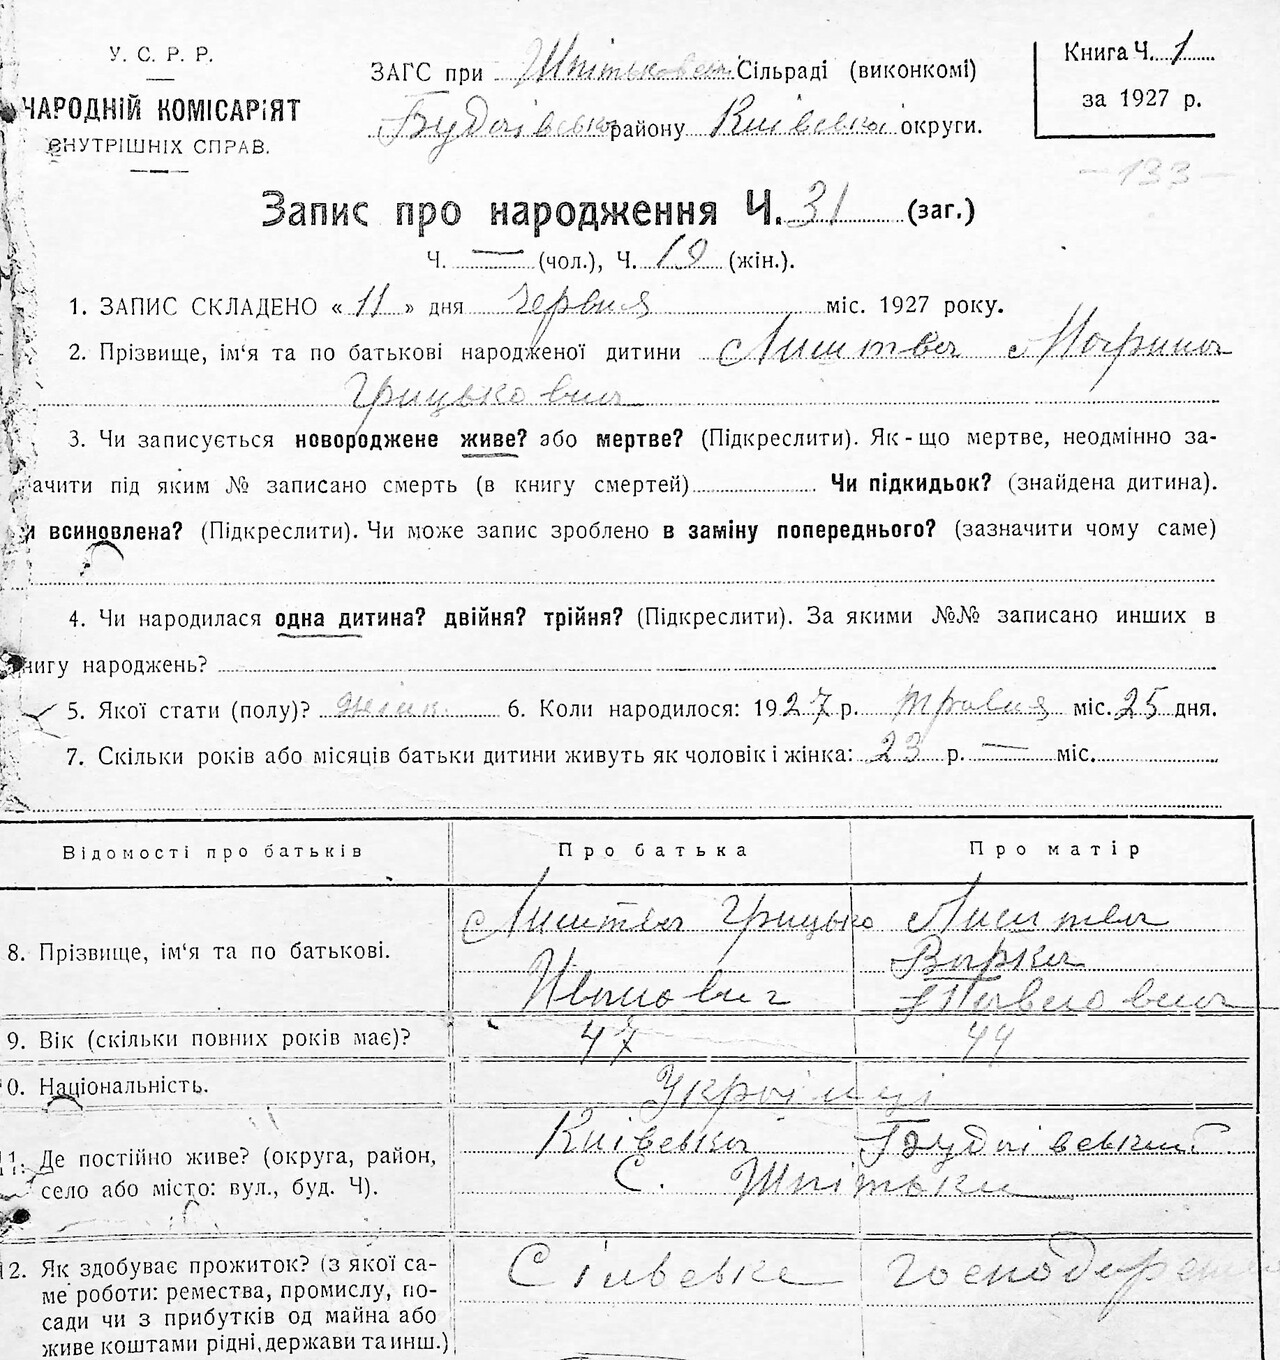 У. С. Р. Р.
НАРОДНІЙ КОМІСАРІЯТ
ВНУТРІШНІХ СПРАВ.
ЗАГС при Шпитьковськ Сільраді (виконкомі)
Будаївськ району Київськ округи.
Книга Ч. 1
за 1927 р.
—133—
Запис про народження Ч. 31 (заг.)
Ч. — (чол.), Ч. 19 (жін.).
1. ЗАПИС СКЛАДЕНО « 11 » дня Червня міс. 1927 року.
2. Прізвище, ім‘я та по батькові народженої дитини Лиштва Марина
Грицьковна
3. Чи записується новороджене живе? або мертве? (Підкреслити). Як-що мертве, неодмінно за-
ачити під яким № записано смерть (в книгу смертей) Чи підкидьок? (знайдена дитина).
и всиновлена? (Підкреслити). Чи може запис зроблено в заміну попереднього? (зазначити чому саме)
4. Чи народилася одна дитина? двійня? трійня? (Підкреслити). За якими №№ записано инших в
книгу народжень?
5. Якої стати (полу)? жіноч. 6. Коли народилося: 1927 р. травня міс. 25 дня.
7. Скільки років або місяців батьки дитини живуть як чоловік і жінка: 23 р. — міс.
Відомості про батьків Про батька Про матір
8. Прізвище, ім‘я та по батькові.
Лиштва Грицько
Иванович
Лиштва
Варка
Павловна
9. Вік (скільки повних років має)? 47 44
0. Національність. Українці
11. Де постійно живе? (округа, район,
село або місто: вул., буд. Ч).
Київська Будаївський
С. Шпітьки
12. Як здобуває прожиток? (з якої са-
ме роботи: ремества, промислу, по-
сади чи з прибутків од майна або
живе коштами рідні, держави та инш.)
Сільське господарство